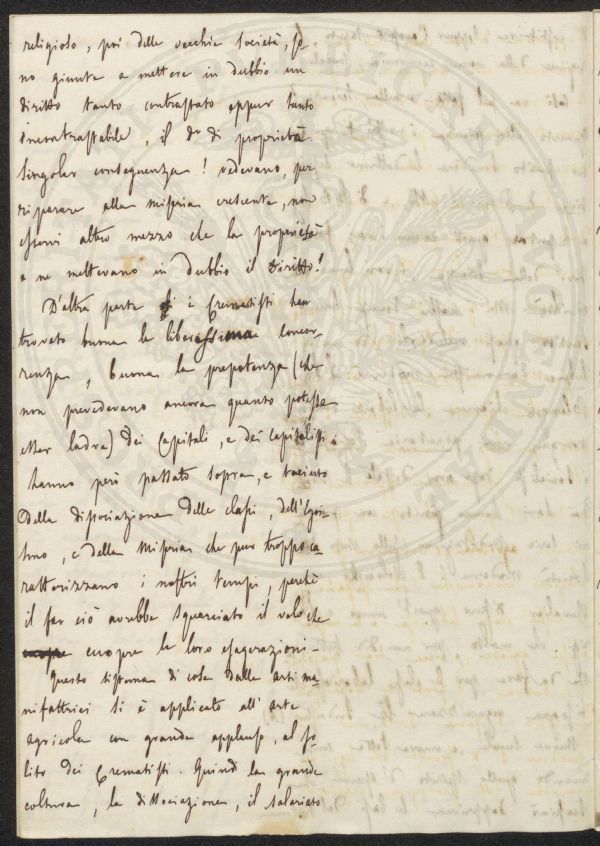 religioso, poi delle vecchie società, so-
no giunte a mettere in dubbio un
diritto tanto contrastato eppur tanto
incontrastabile, il do di proprietà.
Singolar conseguenza! vedevano, per
riparare alla miseria crescente, non
esservi altro mezzo che la proprietà
e ne mettevano in dubbio il diritto!
D'altra parte i Crematisti han
trovato buona la liberissima concor-
renza, buona la prepotenza (che
non prevedevano ancora quanto potesse
esser ladra) dei Capitali, e dei Capitalisti.
hanno però passato sopra, e taciuto
della dissociazione delle classi, dell'Egoi-
smo, e della Miseria che pur troppo ca-
ratterizzano i nostri tempi, perché
il far ciò avrebbe squarciato il velo che
cuopre le loro esagerazioni-
Questo sistema di cose dalle arti ma-
nifattrici si è applicato all'arte
agricola con grande applauso, al so-
lito dei Crematisti. Quindi la grande
coltura, la dissociazione, il salariato